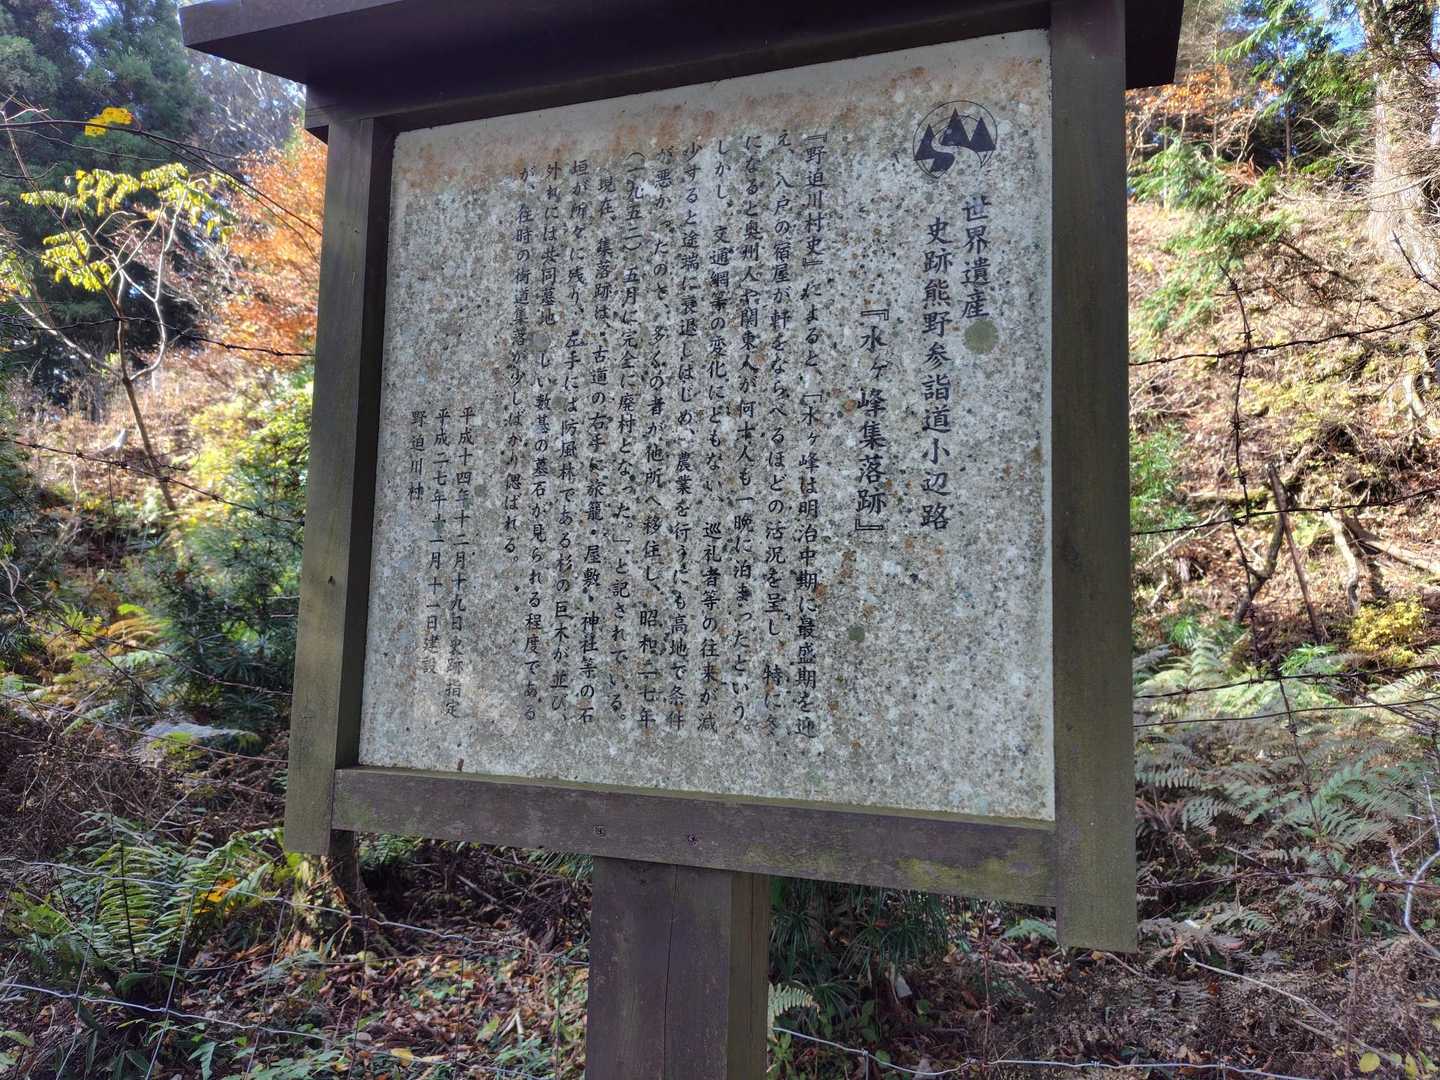 世界遺産
史跡熊野参詣道小辺路
『水ヶ峰集落跡』
『野迫川村史』によると、「水ヶ峰は明治中期に最盛期を迎
え、八戸の宿屋が軒をならべるほどの活況を呈し、特に冬
になると奥州人や関東人が何十人も一晩に泊まったという。
しかし、交通網等の変化にともない、巡礼者等の往来が減
少すると途端に衰退しはじめ、農業を行うにも高地で条件
が悪かったのと、多くの者が他所へ移住し、昭和二七年
(一九五二)五月に完全に廃村となった」、と記されている。
現在、集落跡は、古道の右手に旅籠・屋敷・神社等の石
垣が所々に残り、左手には防風林である杉の巨木が並び、
外れには共同墓地 しい数基の墓石が見られる程度である
が、往時の街道集落が少しばかり偲ばれる。
平成十四年十二月十九日史跡指定
平成二七年十一月十一日建設
野迫川村